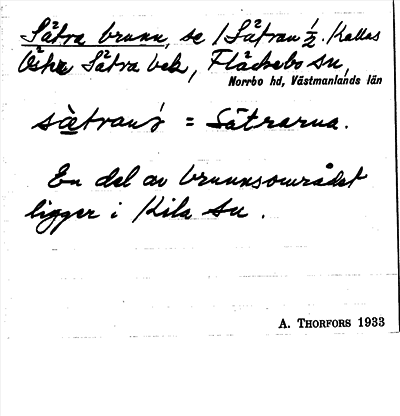 Sätra brunn, se 1 Sätran ½. Kallas
Östra Sätra bek, Fläckebo sn,
Norrbo hd, Västmanlands län
sætran/ = Sätrarna.
En del av brunnsområdet
ligger i Kila sn.
A. THORFORS 1933